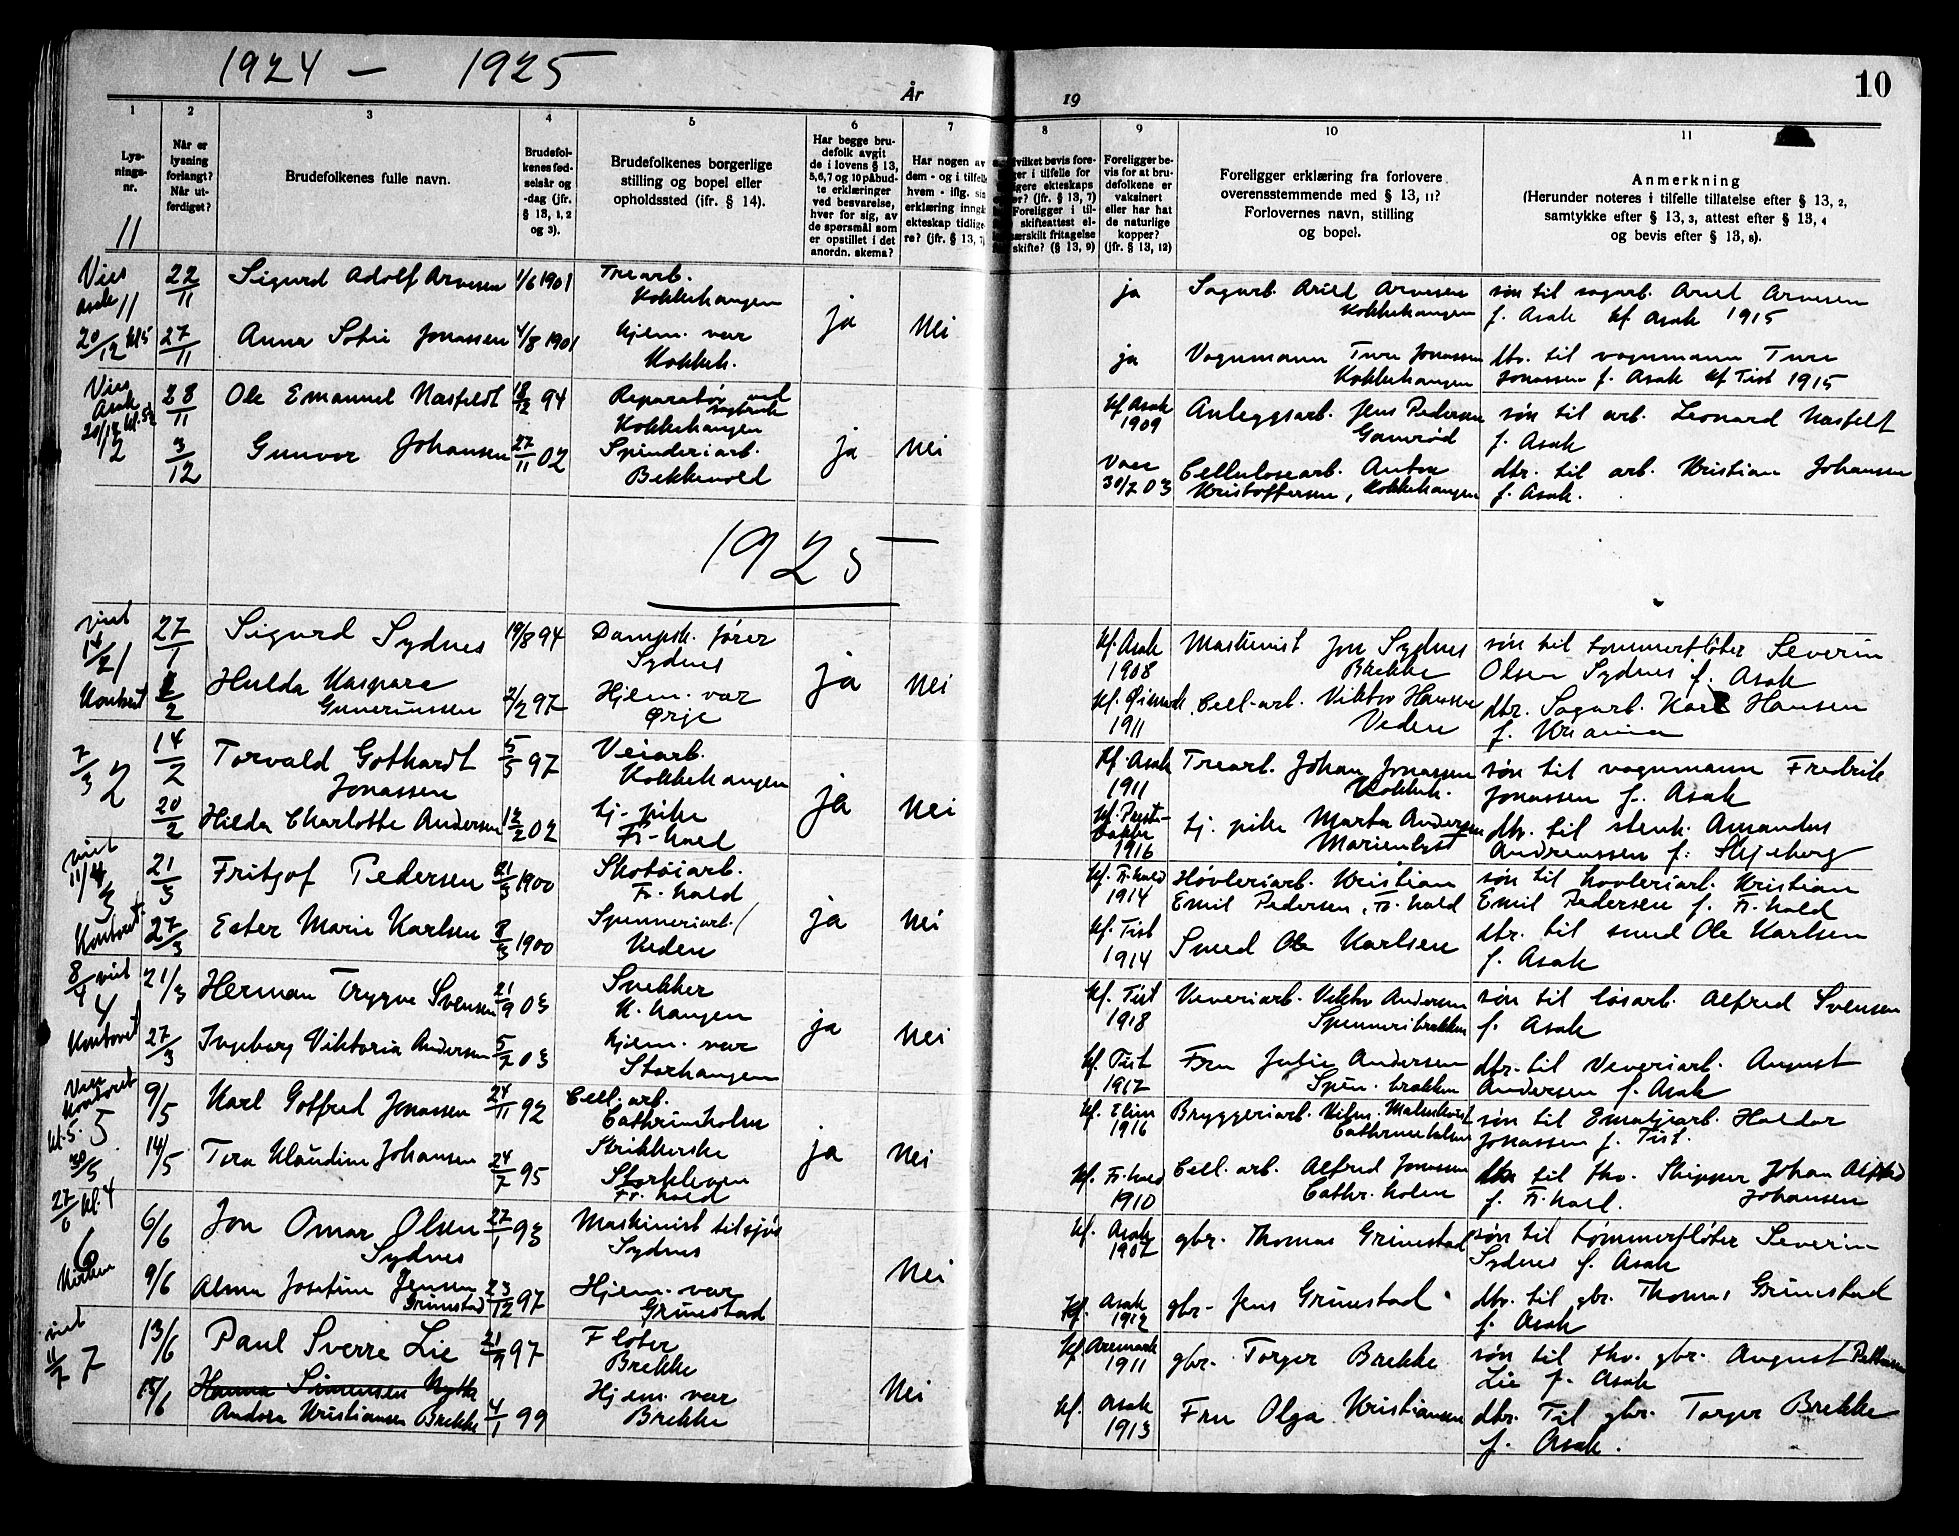 1924 – 1925
10
År
19
1
Lys-
nings-
nr.
2
Når er
lysning
forlangt?
Når ut-
ferdiget?
3
Brudefolkenes fulle navn.
4
Brudefol-
kenes fød-
selsår og
-dag (jfr.
§ 13, 1, 2
og 3).
5
Brudefolkenes borgerlige
stilling og bopel eller
opholdssted (ifr. § 14).
6
Har begge bru-
defolk avgit
de i lovens § 13,
5,6,7 og 10 påbud-
te erklæringer
ved besvarelse,
hver for sig, av
de spørsmål som
er opstillet i det
anordn. skema?
7
Har nogen av
dem - og i tilfelle
hvem - iflg. sin
erklæring inngå
ekteskap tidlige-
re? (jfr. § 13, 7)
8
Hvilket bevis fore-
ger i tilfelle for
gere ekteskaps
er? (jfr. § 13, 7)
Foreligger i til-
skifteattest el-
særskilt fritagelse
skifte? (§ 13, 9)
9
Foreligger be-
vis for at bru-
defolkene er
vaksinert
eller har hat
de naturlige
kopper?
(jfr. § 13, 12)
10
Foreligger erklæring fra forlovere
overensstemmende med § 13, 11?
Forlovernes navn, stilling
og bopel.
11
Anmerkning
(Herunder noteres i tilfelle tillatelse efter § 13, 2,
samtykke efter § 13, 3, attest efter § 13, 4
og bevis efter § 13, 8).
11
Vies
Asak 11
20/12 kl 5
22/11
Sigurd Adolf Arvesen
1/6 1901
Trearb.
Kokkehangen
ja
nei
ja
Sagarb. Ariel Arvesen
Kokkehangen
søn til sagarb. Ariel Arvesen
f. Asak kf Asak 1915
27/11
Anna Sofie Jonassen
4/8 1901
hjem. vær
Kokkeh.
ja
Vognmann Ture Jonassen
Kokkehangen
dtr. til vognmann Ture
Jonassen f. Asak kf Tist 1915
Vies
Asak
12
28/11
Ole Emanuel Nasfeldt
18/12 94
Reparatør ved
sagbruk
Kokkehangen
ja
nei
kf Asak
1909
Anleggsarb. Jens Pedersen
Gamrød
søn til arb. Leonard Nasfelt
f. Asak
3/12
Gunvor Johansen
27/11 02
Spinderiarb.
Bekkevold
Vacc
30/7 03
Cellulosearb. Anton
Kristoffersen, Kokkehangen
dtr. til arb. Kristian Johansen
f. Asak.
1925
viet
14/2 1
Kontoret
27/1
Sigurd Sydnes
19/8 94
Dampsk. fører
Sydnes
ja
nei
kf. Asak
1908
Maskinist Jon Sydnes
Brekke
søn til tømmerfløter Severin
Olsen Sydnes f. Asak
2/2
Hulda Kaspara
Gunerinssen
2/2 97
Hjem. vær
Ørje
kf. Øimark
1911
Cell-arb. Viktor Hansen
Veden
dtr. Sagarb. Karl Hansen
7/3 2
14/2
Torvald Gothardt
Jonassen
5/5 97
Veiarb.
Kokkehangen
ja
nei
kf. Asak
1911
Trearb. Johan Jonassen
Kokkeh.
søn til vognmann Fredrik
Jonassen f. Asak
20/2
Hilda Charlotte Andersen
12/2 02
tj. pike
Fr.hald
kf. Prest-
bakke
1916
tj. pike Marta Andersen
Marienlyst
dtr. til stenh. Amandus
Andreassen f. Skjeberg
viet
11/4
3
Kontoret
21/3
Fritjof Pedersen
21/3 1900
Skotøiarb.
Fr.hald
ja
nei
kf. Fr.hald
1914
Høvleriarb. Kristian
Emil Pedersen, Fr.hald
søn til høvleriarb. Kristian
Emil Pedersen f. Fr.hald
27/3
Ester Marie Karlsen
8/3 1900
Spinneriarb.
Veden
kf. Tist
1914
Smed Ole Karlsen
dtr. til smed Ole Karlsen
f. Asak
8/4 viet
4
Kontoret
21/3
Herman Trygve Svensen
21/9 03
Snekker
K.hangen
ja
nei
kf. Tist
1918
Veveriarb. Viktor Andersen
Spinneribrakken
søn til løsarb. Alfred Svensen
f. Asak
27/3
Ingeborg Viktoria Andersen
5/7 03
hjem. vær
Storhangen
kf. Tist
1917
Fru Julie Andersen
Spin. brakken
dtr. til Veveriarb. August
Andersen f. Asak
Vies
Kontoret
kl. 5. 5
30/5
9/5
Karl Gotfred Jonassen
24/11 92
Cell. arb.
Cathrineholm
ja
nei
kf. Elim
1916
Bryggeriarb. Vilh. Malmkvist
Cathrineholm
søn til Emaljearb. Haldor
Jonassen f. Tist.
14/5
Tora Klaudine Johansen
24/7 95
Strikkerske
Fr.hald
kf. Fr.hald
1910
Cell. arb. Alfred Jonassen
Cathr. holm
dtr. til fhv. Skipper Johan Alfred
Johansen
f. Fr.hald.
27/6 kl. 4
6
Kirken
6/6
Jon Omar Olsen
Sydnes
27/1 93
Maskinist tilsjøs
Sydnes
nei
kf. Asak
1907
gbr. Thomas Grimstad
søn til tømmerfløter Severin
Sydnes f. Asak
9/6
Alma Josefine Jensen
Grimstad
23/12 97
Hjem. vær
Grimstad
kf. Asak
1912
gbr. Jens Grimstad
dtr. til gbr. Thomas Grimstad
f. Asak
viet
11/7 7
13/6
Paul Sverre Lie
21/9 97
Fløter
Brekke
nei
kf Aremark
1911
gbr. Torger Brekke
søn til fhv. gbr. August
Lie f. Asak
15/6
Hanna Simensen
Andora Kristiansen Brekke
4/1 99
Hjem. vær
Brekke
kf. Asak
1913
Fru Olga Kristiansen
dtr. Til gbr. Torger Brekke
f. Asak.